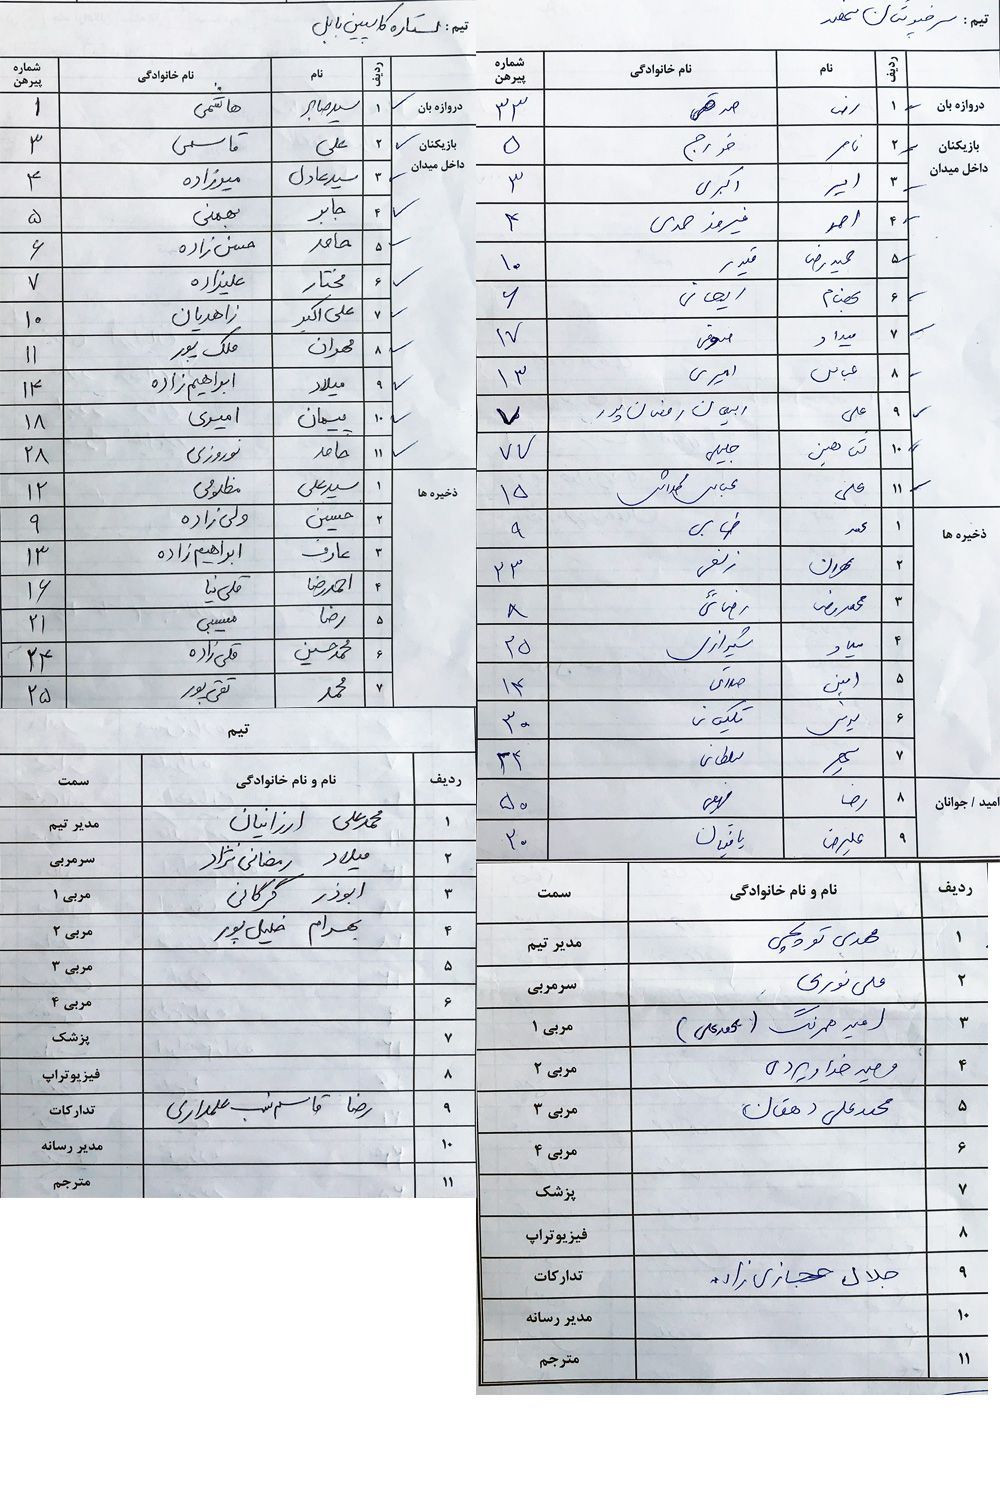 تیم : سرخپوشان
ردیف نام نام خانوادگی شماره پیرهن
دروازه بان ۱ رضا ۳۳
بازیکنان داخل میدان ۲ ۵
۳ امیر اکبری ۳
۴ احمد فیروز صمدی ۴
۵ حمیدرضا قنبر ۱۰
۶ بهنام ۶
۷ میلاد ۱۷
۸ عباس امیری ۱۳
۹ علی رمضان پور ۷
۱۰ شاهین جلیلی ۷۷
۱۱ علی ۱۵
ذخیره ها ۱ ۹
۲ مهران زلفی ۲۳
۳ محمدرضا رضائی ۸
۴ میلاد شیرازی ۲۵
۵ امین ۱۴
۶ یونس ۳۰
۷ سلطانی ۳۴
امید / جوانان ۸ رضا ۵۰
۹ علیرضا ۲۰
ردیف نام و نام خانوادگی سمت
۱ مهدی مدیر تیم
۲ علی نوری سرمربی
۳ امید (محمدعلی) مربی ۱
۴ وحید خداویردی مربی ۲
۵ محمدعلی دهقان مربی ۳
۶ مربی ۴
۷ پزشک
۸ فیزیوتراپ
۹ جلال حجازی زاده تدارکات
۱۰ مدیر رسانه
۱۱ مترجم
تیم : ستاره کاسپین بابل
ردیف نام نام خانوادگی شماره پیرهن
دروازه بان ۱ سیدصابر هاشمی ۱
بازیکنان داخل میدان ۲ علی قاسمی ۳
۳ سیدعادل میرزاده ۴
۴ جابر بهمنی ۵
۵ حامد حسن زاده ۶
۶ مختار علیزاده ۷
۷ علی اکبر زاهدیان ۱۰
۸ مهران ملک پور ۱۱
۹ میلاد ابراهیم زاده ۱۴
۱۰ پیمان امیری ۱۸
۱۱ حامد نوروزی ۲۸
ذخیره ها ۱ سیدعلی مظلومی ۱۲
۲ حسین ولی زاده ۹
۳ عارف ابراهیم زاده ۱۳
۴ احمدرضا قلی نیا ۱۶
۵ رضا مسیبی ۲۱
۶ محمدحسین قلی زاده ۲۴
۷ محمد تقی پور ۲۵
تیم
ردیف نام و نام خانوادگی سمت
۱ محمدعلی ارزانیان مدیر تیم
۲ میلاد رمضانی نژاد سرمربی
۳ ابوذر گرگانی مربی ۱
۴ بهرام خلیل پور مربی ۲
۵ مربی ۳
۶ مربی ۴
۷ پزشک
۸ فیزیوتراپ
۹ رضا قاسم نسب علمداری تدارکات
۱۰ مدیر رسانه
۱۱ مترجم